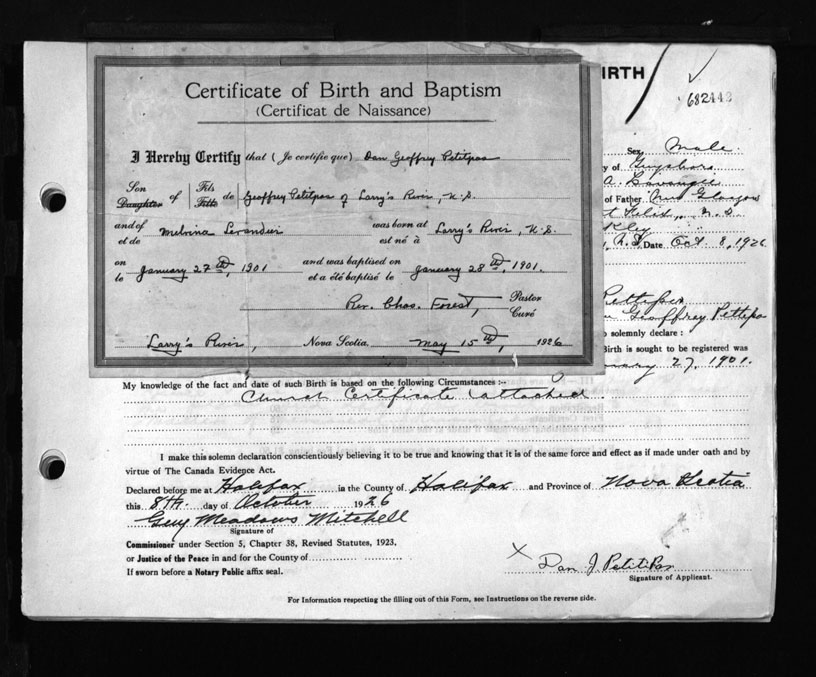 Certificate of Birth and Baptism
(Certificat de Naissance)
I Hereby Certify that (Je certifie que) Dan Geoffrey Petitpas
Son Daughter of Fils Fille de Geoffrey Petitpas of Larry's River, N.S.
and of et de Melvina was born at est né à Larry's River, N.S.
on le January 27th, 1901 and was baptised on et a été baptisé le January 28th, 1901.
Rev. Chas. Forest, Pastor Curé
Larry's River, Nova Scotia. May 15th, 1926
IRTH
682442
Sex Male
y of
A.
of Father New Glasgow
N.S.
Date Oct 8, 1926
Geoffrey
o solemnly declare :
Birth is sought to be registered was
uary 27, 1901.
My knowledge of the fact and date of such Birth is based on the following Circumstances :--
Church Certificate attached.
I make this solemn declaration conscientiously believing it to be true and knowing that it is of the same force and effect as if made under oath and by
virtue of The Canada Evidence Act.
Declared before me at Halifax in the County of Halifax and Province of Nova Scotia
this 8th. day of October 1926
Guy Meadows Mitchell
Signature of
Commissioner under Section 5, Chapter 38, Revised Statutes, 1923.
or Justice of the Peace in and for the County of
If sworn before a Notary Public affix seal.
X Dan J Petitpas
Signature of Applicant.
For Information respecting the filling out of this Form, see Instructions on the reverse side.